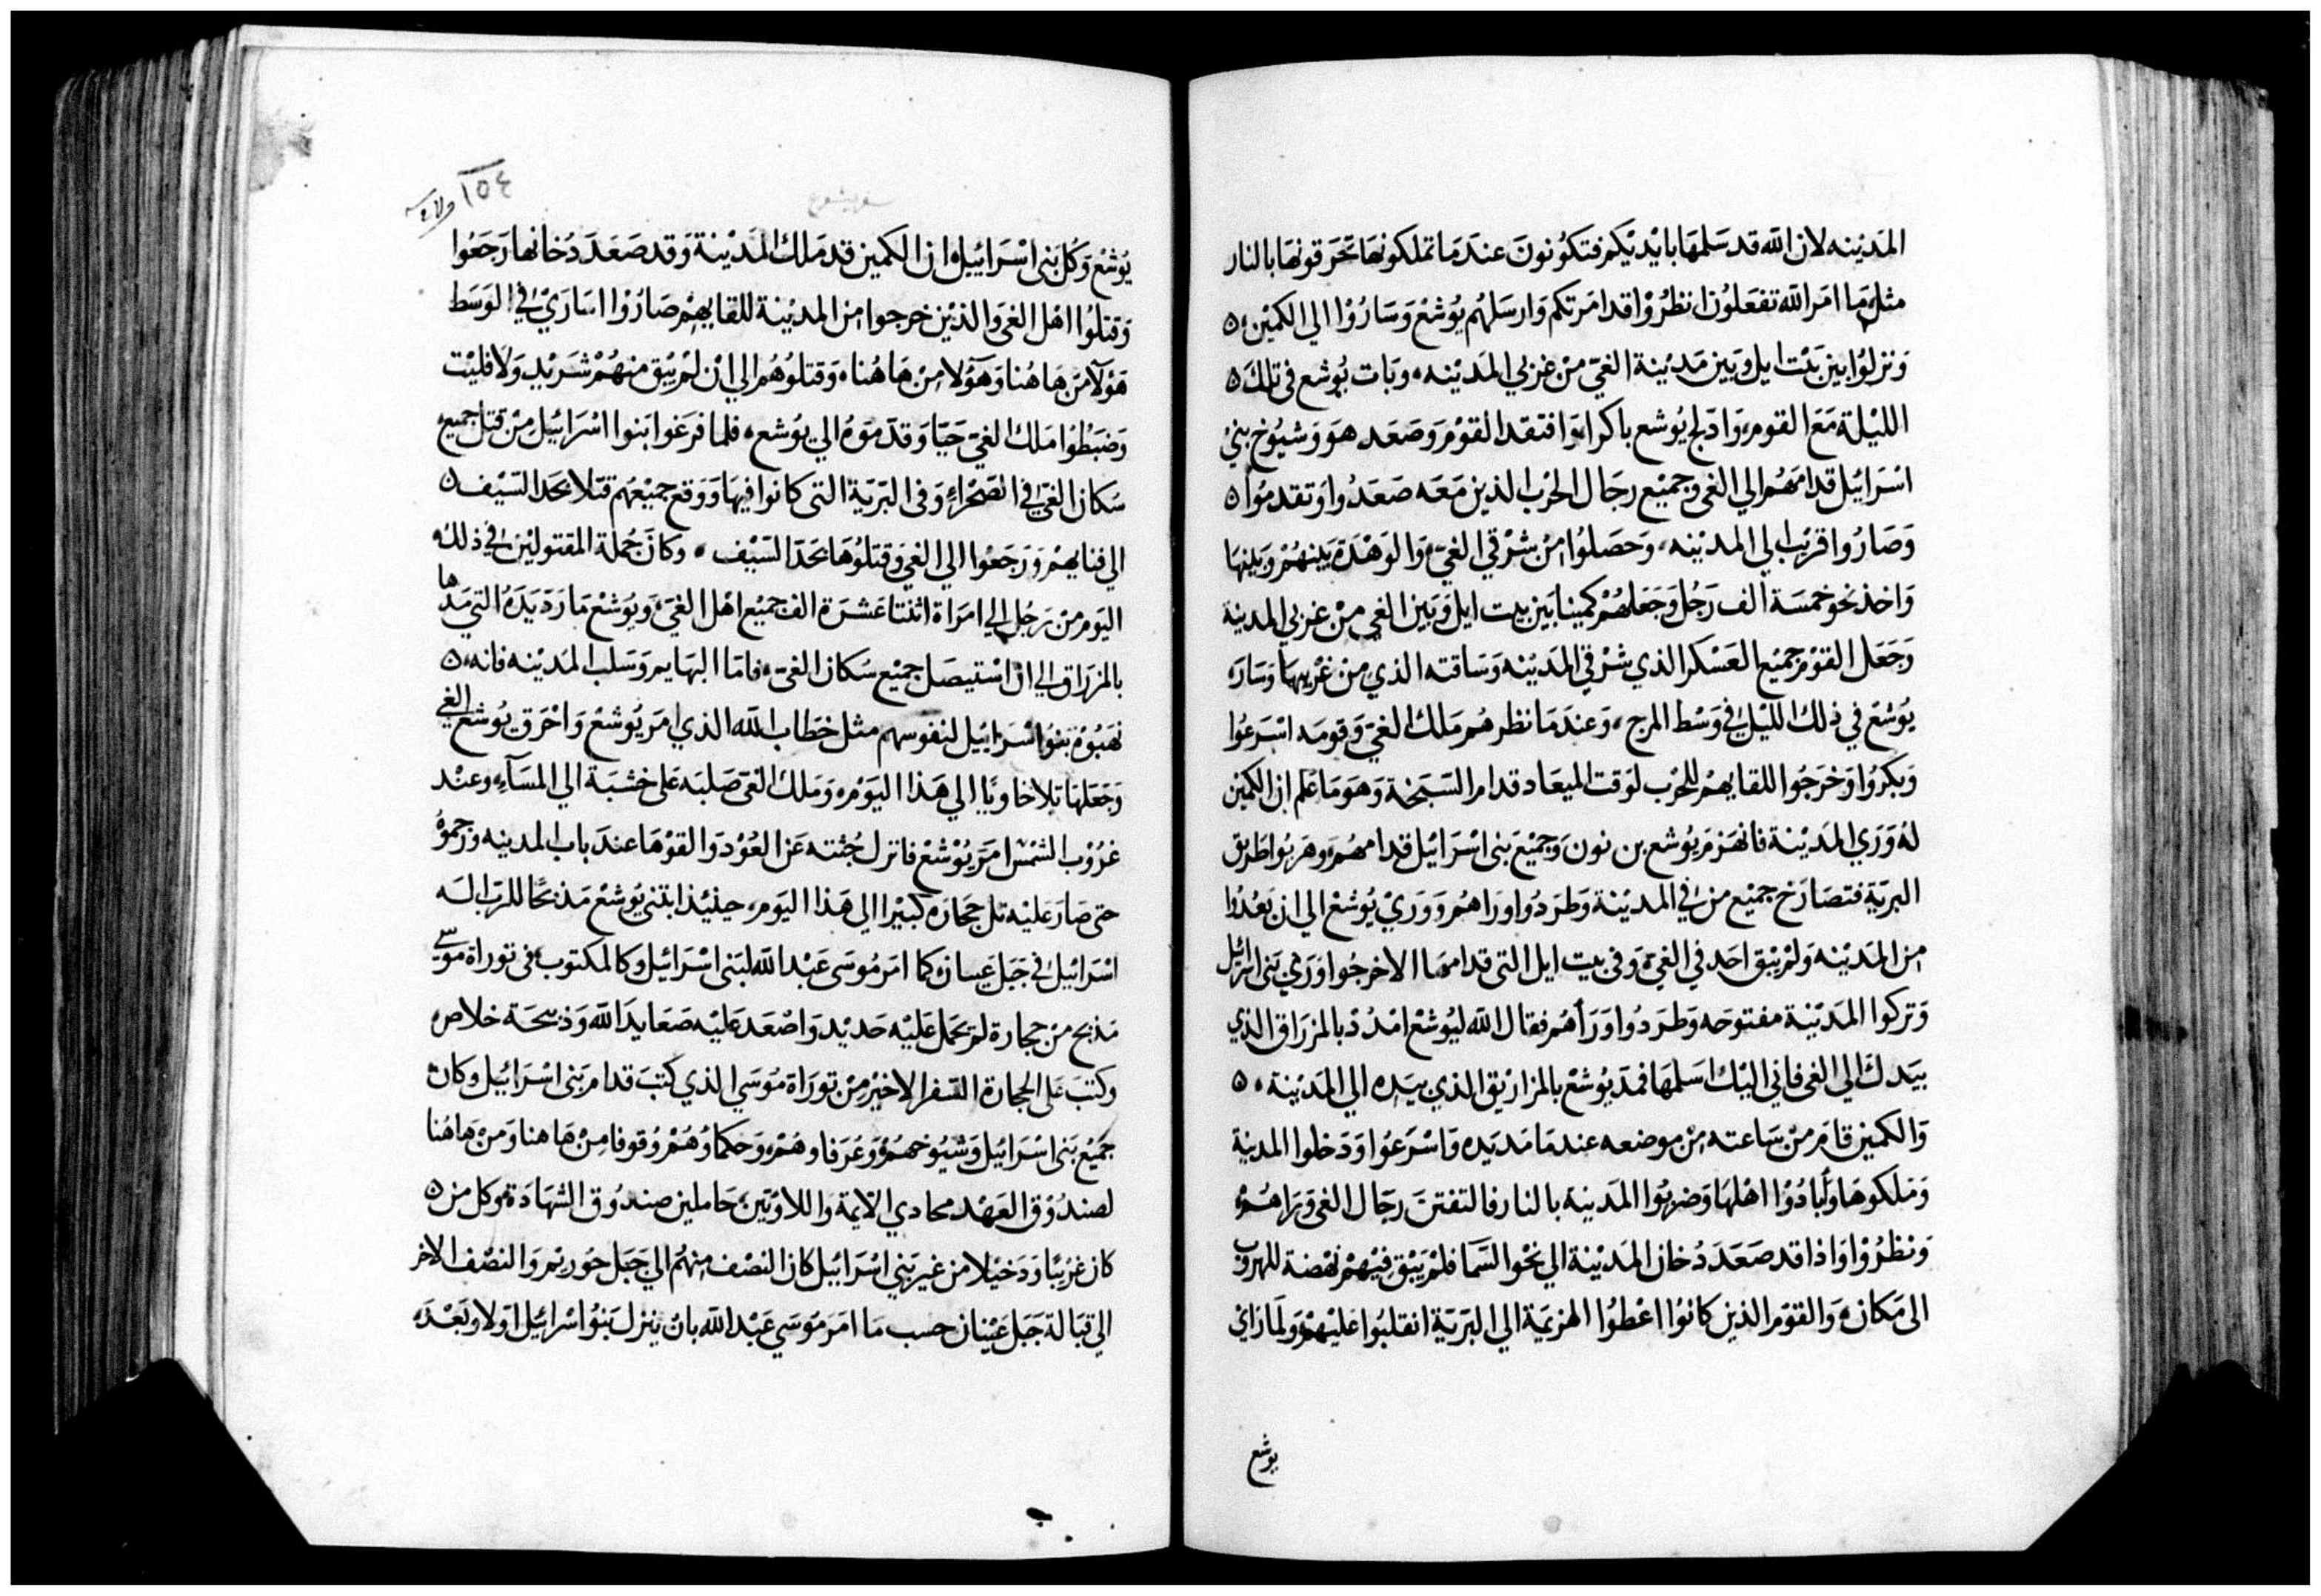 المَدينه لان الله قد سَلمهَا بايْديْكم فتكوُنونَ عندَ مَا تملكونهَا تحَرقونهَا بالنار
مثل مَا امَر الله تفعَلوُن انظرُوْا قد امَرتكم وَارسَلهُم يُوشعْ وَسَارُوْا الي الكميْن
وَنزلوُا بين بَيْت ايل وبَين مَدينة الغيّ منْ غربي المَديْنه وبَات يوُشع في تلكَ
الليْلة مَعَ القومِ وَادلج يُوشع باكرا وَافتقد القوْم وَصَعَد هوَ وَشيُوخ بنيْ
اسْرَائيْل قدامَهُم الي الغي وجميْع رجَال الحَرْب الذين مَعَه صَعَدُوا وَتقدمُوا
وَصَارُوا قريْب الي المديْنه وَحَصَلوُا منْ شرْقي الغيّ وَالوَهْدَة بَينهُمْ وَبَينهَا
وَاخذ نحو خمسَة الف رَجُل وَجَعَلهُمْ كمينا بَين بيت ايل وَبَين الغي منْ غربي المدينة
وَجَعَل القوْم جميْع العَسْكر الذي شرْقي المَديْنه وَسَاقته الذي منْ غرْبيهَا وَسَارَ
يُوَشع في ذلك الليْل في وَسْط المرج وَعندَ مَا نظرهُم مَلك الغيّ وَقومَه اسْرَعُوا
وَبكرُوا وَخرَجُوا للقايهمْ للحَرْب لوَقت الميعَاد قدام السَبَخة وَهوَ مَا عَلم ان الكميْن
لهُ وَرَي المَديْنة فانهَزمَ يُوشع بن نون وَجميْع بَني اسْرَائيْل قدامهُم وهَربُوا طَريق
البريّة فتصَارَخ جميْع من في المديْنة وَطرَدُوا وَرَاهمُ وَوَريْ يُوشعْ الي ان بَعُدُوا
من المَديْنه وَلمْ يَبْق احَد في الغيّ وَفي بيت ايل التي قدامهَا الا خرجُوا وَرَيْ بَني اسْرَائيل
وَتركوا المَديْنة مفتوحَه وَطرَدُوا وَرَأهمُ فقال الله ليُوشعْ امْدُدْ بالمزرَاق الذي
بيَدكَ الي الغي فاني اليْك اسَلمهَا فمَد يُوشعْ بالمزاريْق الذي بيَده الي المَديْنة
وَالكمين قامَ منْ سَاعته منْ موضعه عندمَا مَد يَده وَاسْرَعُوا وَدَخلوا المدينة
وَمَلكوهَا وَأبادُوْا اهْلهَا وَضربُوا المَدينة بالنار فالتفتنَ رجَال الغي وَرَاهُمْ
وَنظرُوْا وَاذا قد صَعَدَ دُخان المَديْنة الي نحْو السَّمَا فلمْ يَبْق فيْهمْ نهْضة للهرُوب
الى مَكان وَالقوْم الذين كانوُا اعْطوُا الهزيمَة الي البَريّة انقلبُوا عَليْهمْ وَلما رَايْ
يوشع
سفر يشوع
١٥٤
يُوشعْ وَكُل بَني اسْرَائيْل ان الكمين قد مَلك المَديْنة وَقد صَعَدَ دُخانها رَجَعُوا
وَقتلوُا اهْل الغي وَالذيْن خرجوا من المديْنة للقايهمْ صَارُوْا اسَاريْ في الوَسَط
هَوْلآ منْ هَا هُنا وَهَوُلا منْ هَا هُنا وَقتلوُهُم الي انْ لمْ يَبْق منهُمْ شَريْد وَلا فليْت
وَضبَطُوْا مَلك الغيّ حَيّا وَقدّموَهُ الي يوُشع فلما فرَغوا بَنوا اسْرَائيْل منْ قتل جميع
سُكان الغيّ في الصَحْراءِ وَفي البَريّة التي كانوا فيهَا وَوَقع جميْعهُم قتلا بحَد السّيْف
الي فنايهمْ وَرَجَعُوا الي الغي وَقتلوُهَا بحَد السّيْف وكانَ جُملة المقتوليْن في ذلك
اليَوم من رَجُل الي امرَاة اثنتا عَشرَة الف جميْع اهْل الغيّ وَيوُشعْ مَا رَدّ يَدَهُ التي مَدّها
بالمزرَاق الي ان اسْتيصَل جميْع سُكان الغيّ فامَا البهَايم وَسَلب المَديْنه فانه
نهبُوْه بَنوُا اسْرَائيل لنفوسهم مثل خطاب الله الذي امرَ يُوشعْ وَاحْرق يوُشع الغي
وَجَعَلهَا تلا خاويًا الي هَذا اليَوْم وَمَلك الغي صَلبَه عَلى خشبَة الي المسَآءِ وعنْد
غرُوْب الشمْس امَر يُوْشعْ فانزل جُثته عَن العُوْد وَالقوْهَا عندَ باب المدينه ورَجموُهُ
حتى صَارَ عَليْه تل حجَارَه كبيْرا الي هَذا اليَوم حينيْذ ابتني يُوْشعْ مَذبحًا للربّ الَه
اسْرَائيْل في جَبَل عَيبان كما امَر مُوسَى عَبْد الله لبَني اسْرَائيْل وكالمكتوب في توراة مُوسي
مَذبح منْ حجارة لمْ يحمَل عَليْه حَديْد وَاصْعَد عَليْه صَعَايدَ الله وَذبيْحَة خلاص
وكتبَ عَلى الحجارة السّفر الاخيْر منْ توراة مُوسَي الذي كتبَ قدام بَني اسْرَائيْل وكان
جَميْع بَني اسْرَائيْل وَشيُوخهمُ وَعُرَفاوهُمْ وَحكماوُهمْ وُقوفا منْ هَا هنا وَمنْ هَا هُنا
لصندُوْق العَهْد محادي الايمة وَاللاويّين حَاملين صندُوق الشهَادَة وكل من
كان غريْبًا وَدَخيْلا من غير بَني اسْرَائيْل كان النصْف منهُم الي جَبَل حُوريْم وَالنصْف الاخر
الي قبَالة جَبَل عَيْبان حسب مَا امَر مُوسَي عَبْد الله بانْ ينزل بَنوُا اسْرَائيْل اوَلا وَبَعْدَ